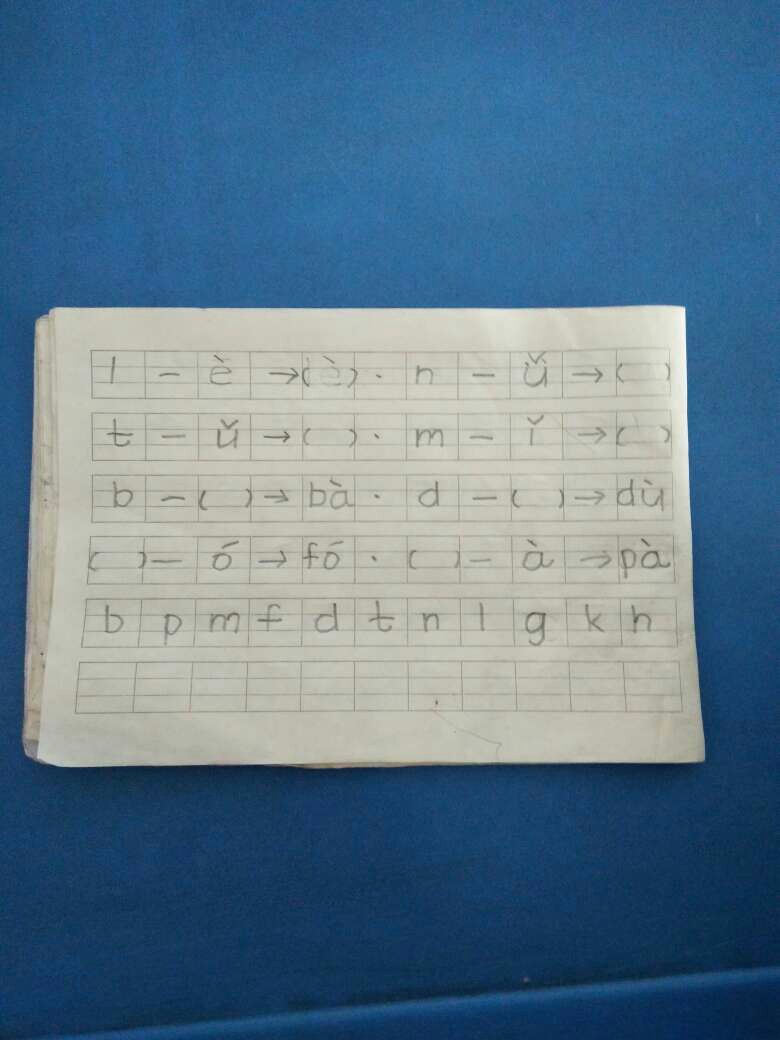 l - è → (è) · n - ǚ → ( )
t - ǔ → ( ) · m - ǐ → ( )
b - ( ) → bà · d - ( ) → dù
( ) - ó → fó · ( ) - à → pà
b p m f d t n l g k h